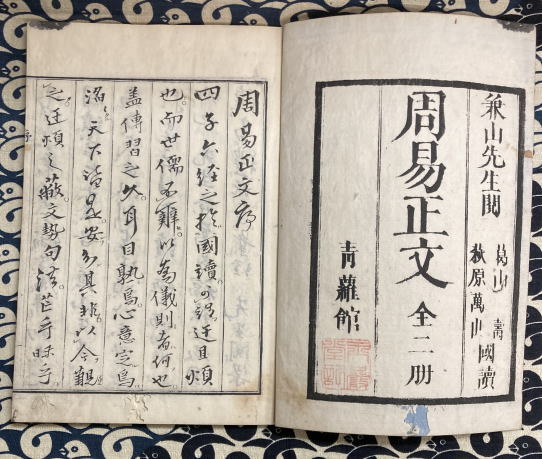 兼山先生閲
葛山 壽
萩原萬世 國讀
周易正文 全二册
青蘿館
周易正文序
四子六經之於國讀可謂迂且煩
也而世儒不難以為儀則者何也
盖傳習之久耳目孰焉心意定焉
滔天下皆是安知其非以今觀
之迂煩之蔽文勢句法茫乎昧乎
序